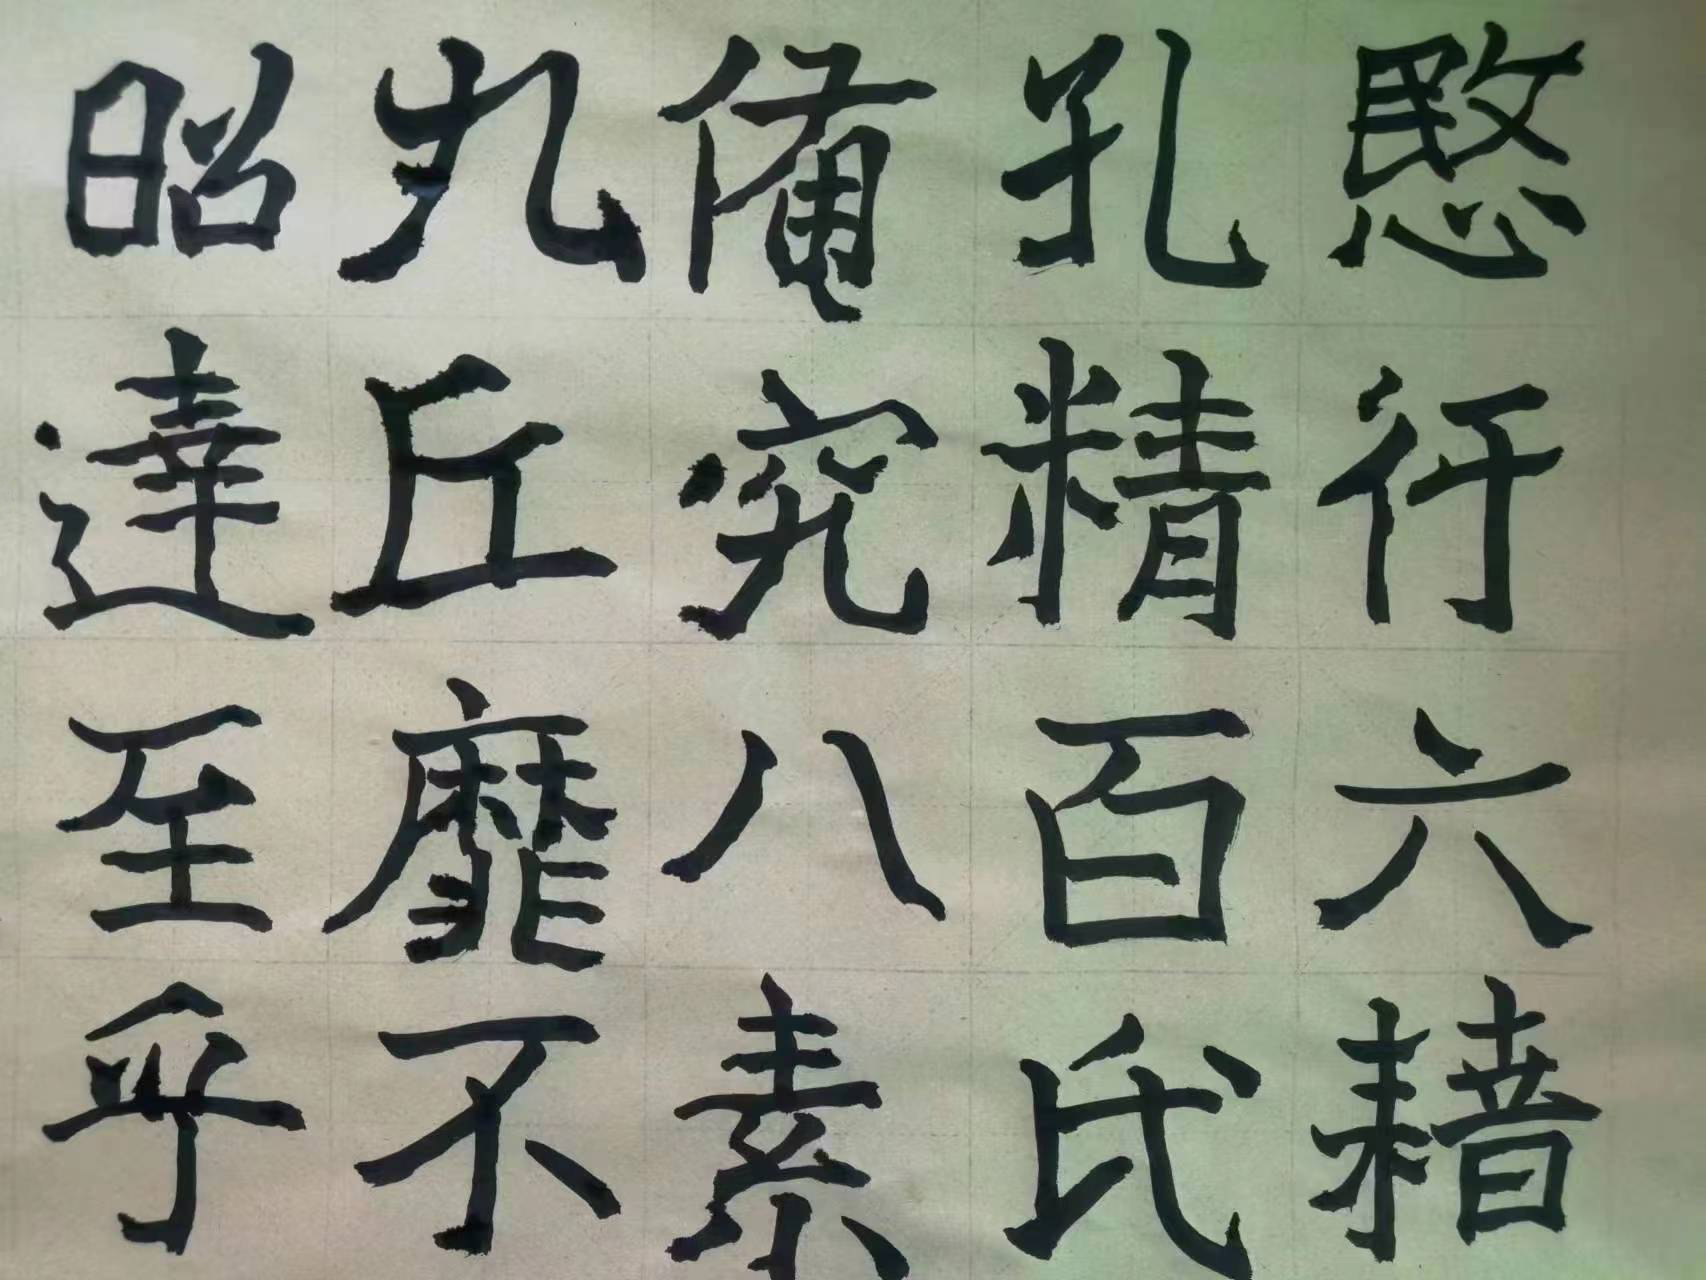 愍行六耤
孔精百氏
備究八素
九丘靡不
昭達至乎